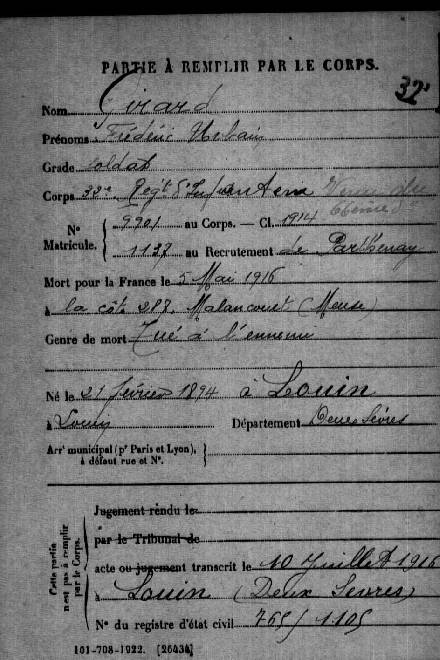 PARTIE À REMPLIR PAR LE CORPS.
32e
Nom Girard
Prénoms Frédéric Urbain
Grade Soldat
Corps 32e Regt d'Infanterie Venu du
66eme
N° Matricule. 9907 au Corps. — Cl. 1914
1137 au Recrutement de Parthenay
Mort pour la France le 5 Mai 1916
à la côte 287, Malancourt (Meuse)
Genre de mort Tué à l'ennemi
Né le 21 février 1894 à Louin
à Louin Département Deux Sèvres
Arrt municipal (pr Paris et Lyon), à défaut rue et N°.
Cette partie n'est pas à remplir par le Corps.
Jugement rendu le
par le Tribunal de
acte ou jugement transcrit le 10 Juillet 1916
à Louin (Deux Sevres)
N° du registre d'état civil 765/1105
101-708-1922. [26434]